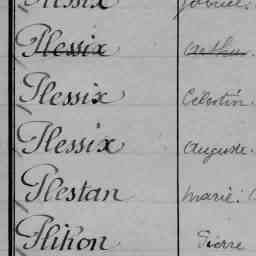 Plessix Gabriel.
Plessix Arthur
Plessix Célestin
Plessix Auguste.
Plestan Marie.
Plihon Pierre